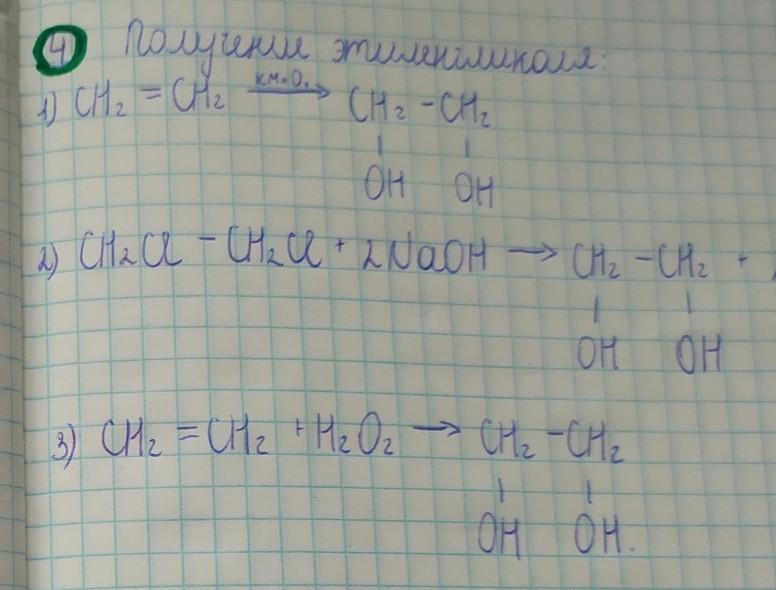 4 Получение этиленгликоля:
KMnO₄
1) CH₂ = CH₂ → CH₂ - CH₂
OH OH
2) CH₂Cl - CH₂Cl + 2NaOH → CH₂ - CH₂ +
OH OH
3) CH₂ = CH₂ + H₂O₂ → CH₂ - CH₂
OH OH.